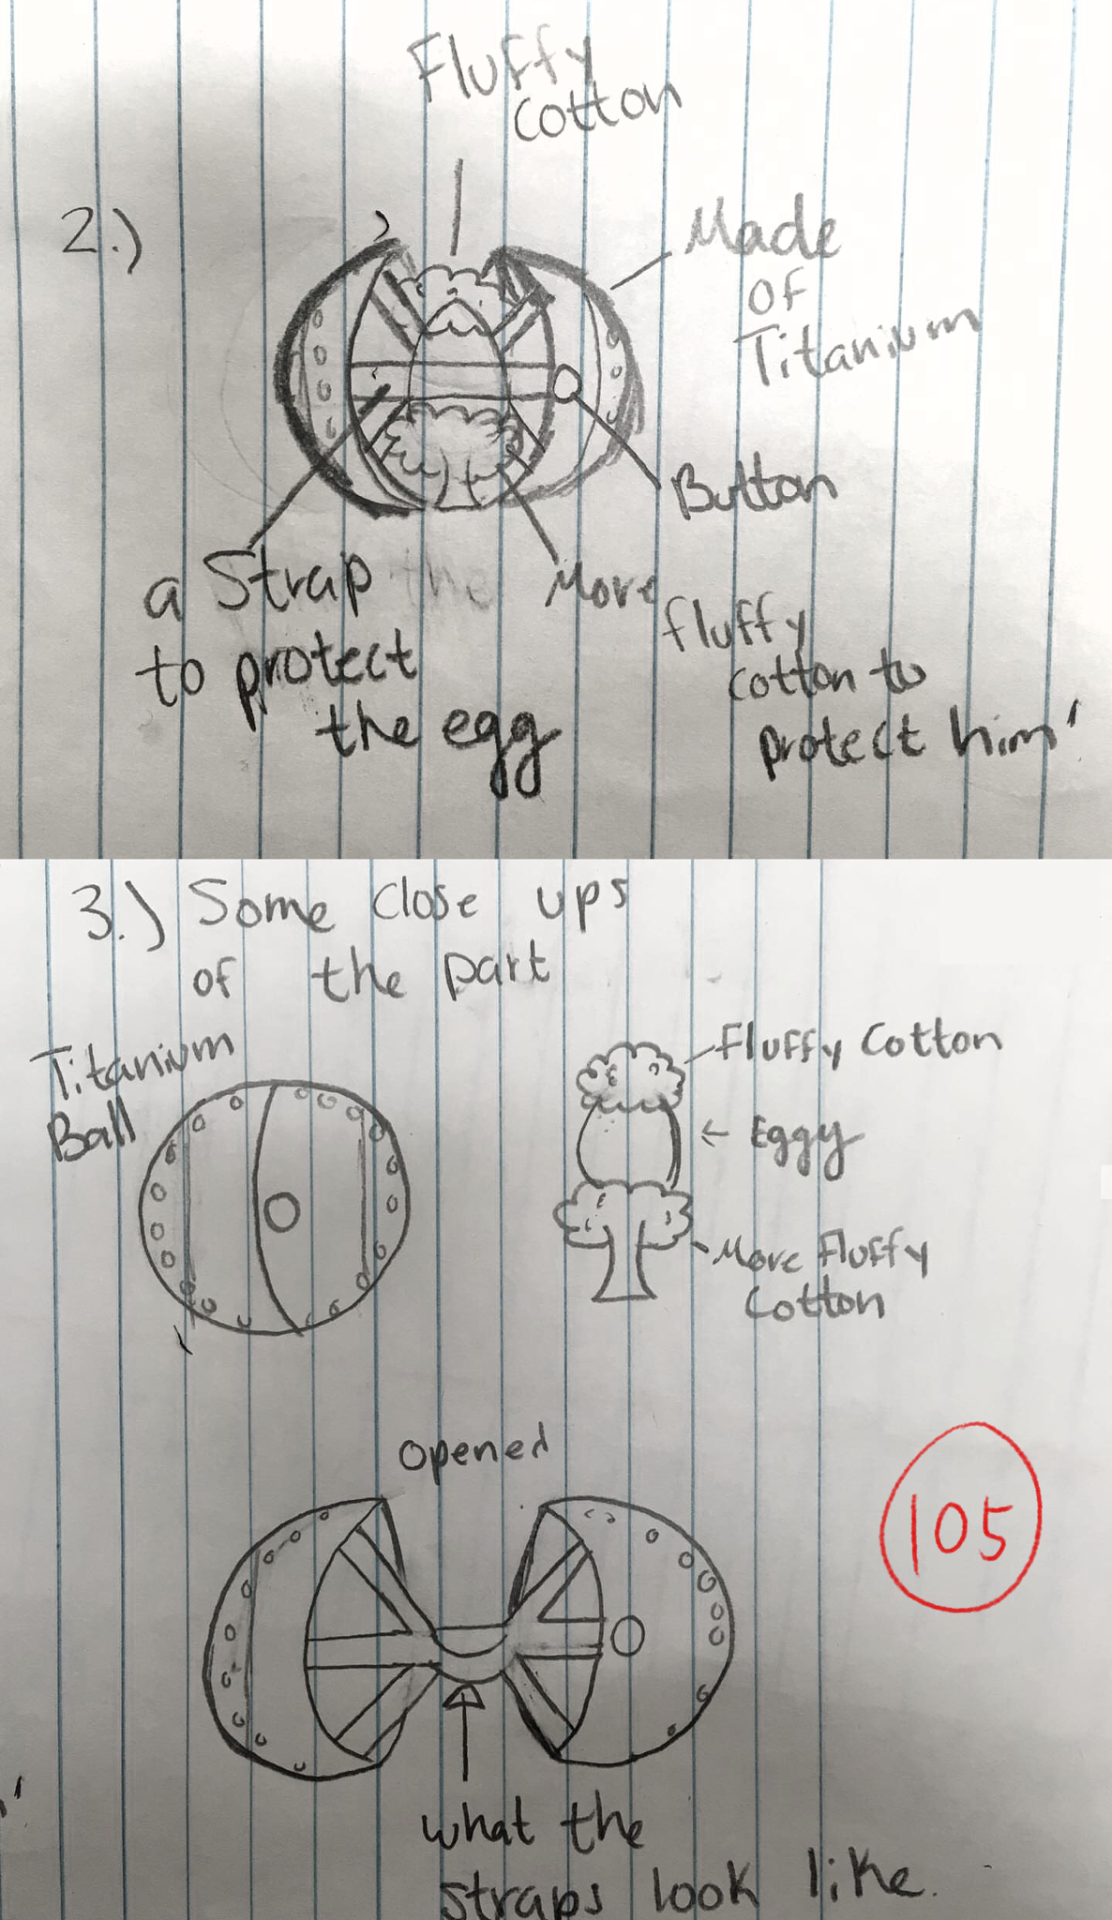 Fluffy
Cotton
2.)
Made
OF
Titanium
Button
a Strap the
to protect
the egg
More
fluffy
cotton to
protect him'
3.) Some close ups
of the part
Titanium
Ball
Fluffy Cotton
Eggy
More Fluffy
Cotton
opened
105
what the
straps look like.